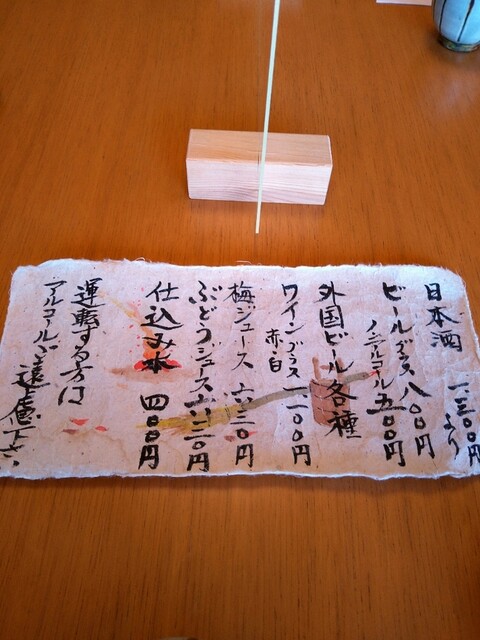 日本酒 一、三〇〇円より
ビールグラス 八〇〇円
ノンアルコール 五〇〇円
外国ビール各種
ワイングラス 赤・白 一、一〇〇円
梅ジュース 六三〇円
ぶどうジュース 六三〇円
仕込み水 四〇〇円
運転する方は
アルコールご遠慮下さい